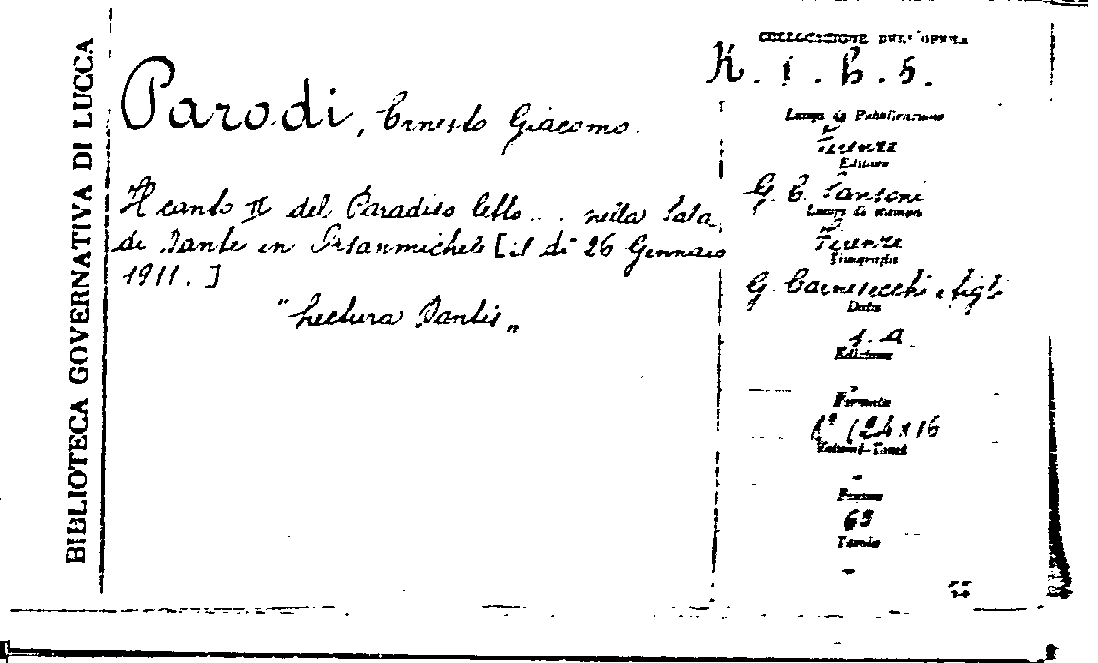 BIBLIOTECA GOVERNATIVA DI LUCCA
Parodi, Ernesto Giacomo.
Il canto II del Paradiso letto... nella Sala
di Dante in Orsanmichele [il dì 26 Gennaio
1911.]
"Lectura Dantis"
COLLOCAZIONE DELL'OPERA
K. 1. b. 5.
Luogo di Pubblicazione
Firenze
Editore
G. C. Sansoni
Luogo di stampa
Firenze
Tipografia
G. Carnesecchi e figli
Data
s. a.
Edizione
-
Formato
8° (24x16
Volumi-Tomi
-
Pagine
Tavole
-